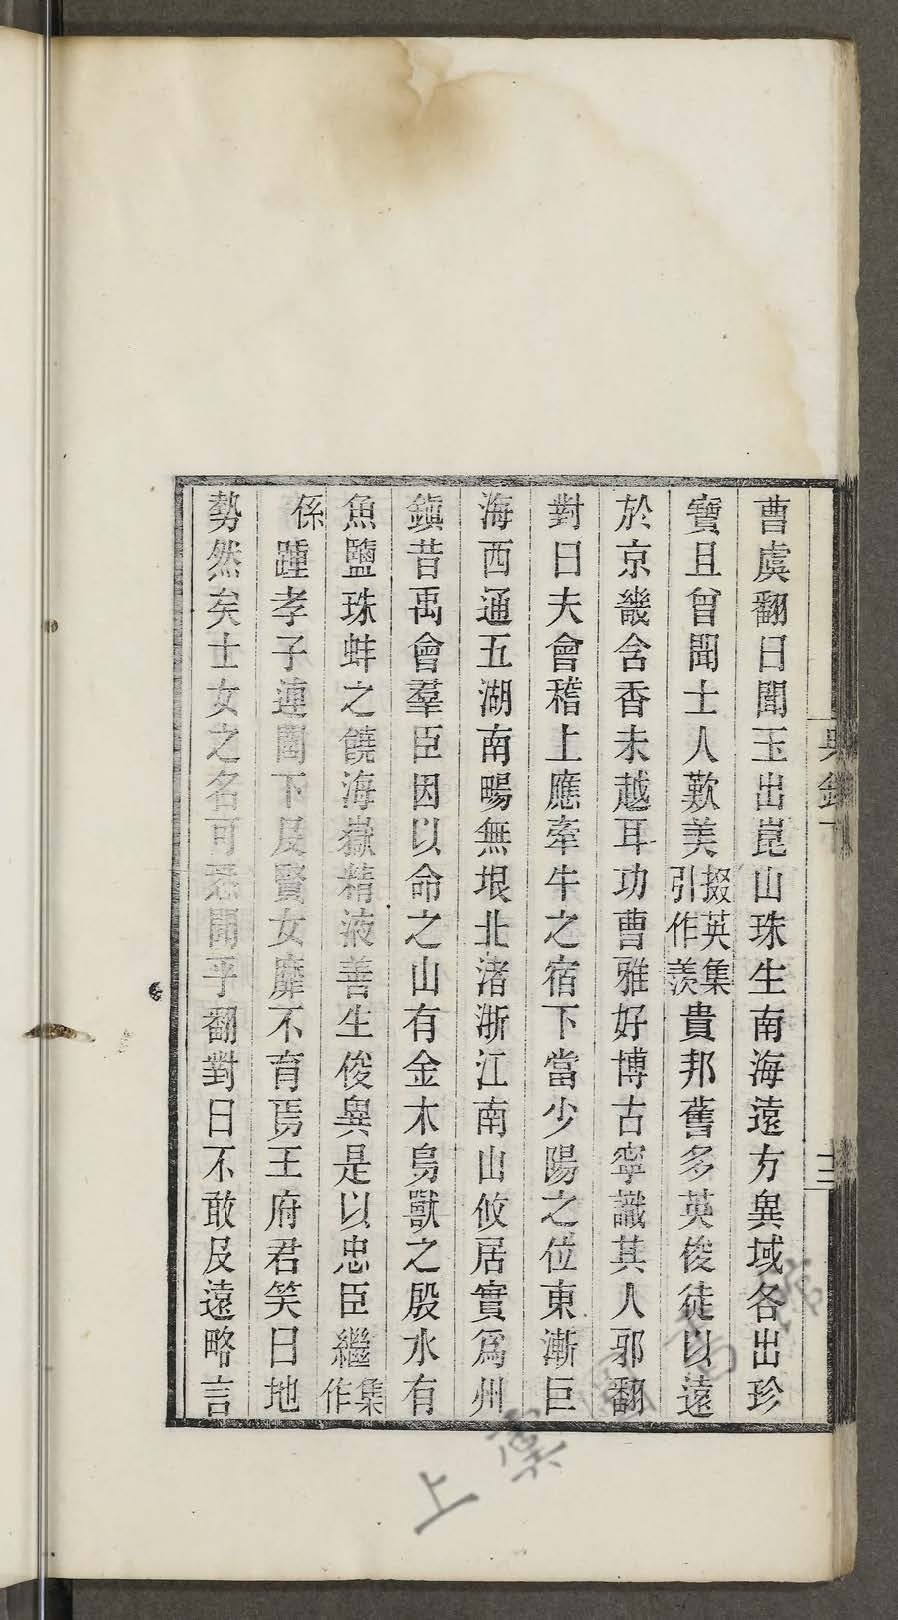 曹虞翻曰聞玉出崑山珠生南海遠方異域各出珍
寶且曾聞士人歎美掇英集引作羨貴邦舊多英俊徒以遠
於京畿含香未越耳功曹雅好博古寧識其人邪翻
對曰夫會稽上應牽牛之宿下當少陽之位東漸巨
海西通五湖南暢無垠北渚浙江南山攸居實爲州
鎭昔禹會羣臣因以命之山有金木鳥獸之殷水有
魚鹽珠蚌之饒海嶽精液善生俊異是以忠臣繼集作
係踵孝子連閭下及賢女靡不育焉王府君笑曰地
勢然矣士女之名可悉聞乎翻對曰不敢及遠略言
典錄下
十三
上虞圖書館